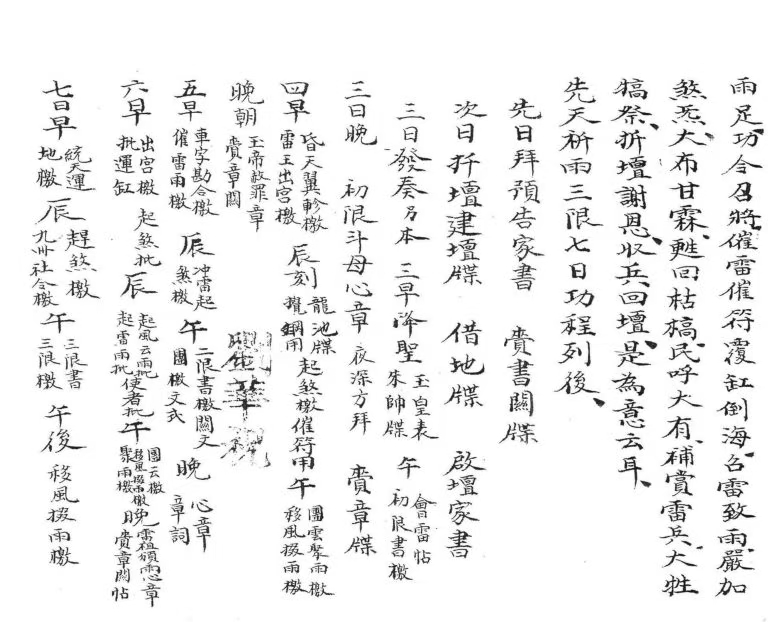 雨足、功令召將催雷催符覆缸倒海、召雷致雨、嚴加
煞炁、大布甘霖、甦回枯槁、民呼大有、補賞雷兵、大牲
犒祭、折壇謝恩、收兵回壇、是為意云耳、
先天祈雨三限七日功程列後、
先日拜預告家書 賫書關牒
次日扦壇建壇牒 借地牒 啟壇家書
三日發奏另本 三早降聖 玉皇表 朱帥牒 午 會雷帖 初限書檄
三日晚 初限斗母心章 夜深方拜 賫章牒
四早 昏天翼軫檄 雷王出宮檄 辰刻 龍池牒 攪鋼用 起煞檄催符用 午 團雲聚雨檄 移風掇雨檄
晚朝 玉帝赦罪章 賫章關
五早 車字勘合檄 催雷雨檄 辰 冲雷起 煞檄 午 二限書檄關文 團檄文式 晚 心章 章詞
六早 出宮檄 批運缸 起煞批 辰 起風云雨批 起雷雨批 使者批 午 團云檄 移風掇雨檄 聚雨檄 晚 雷祖頒雨心章 賫章關帖
七日早 統天運 地檄 辰 趕煞檄 九州社令檄 午 三限書 三限檄 午後 移風掇雨檄